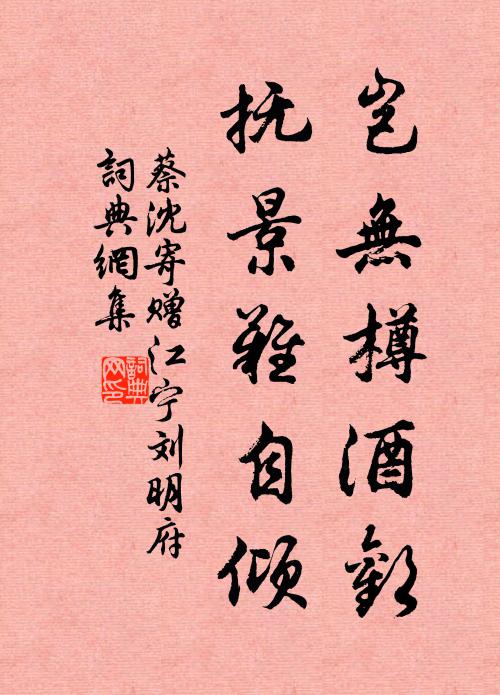 岂無樽酒歡
抚景難自傾
蔡沈寄赠江宁刘明府
詞典網集
詞典網印